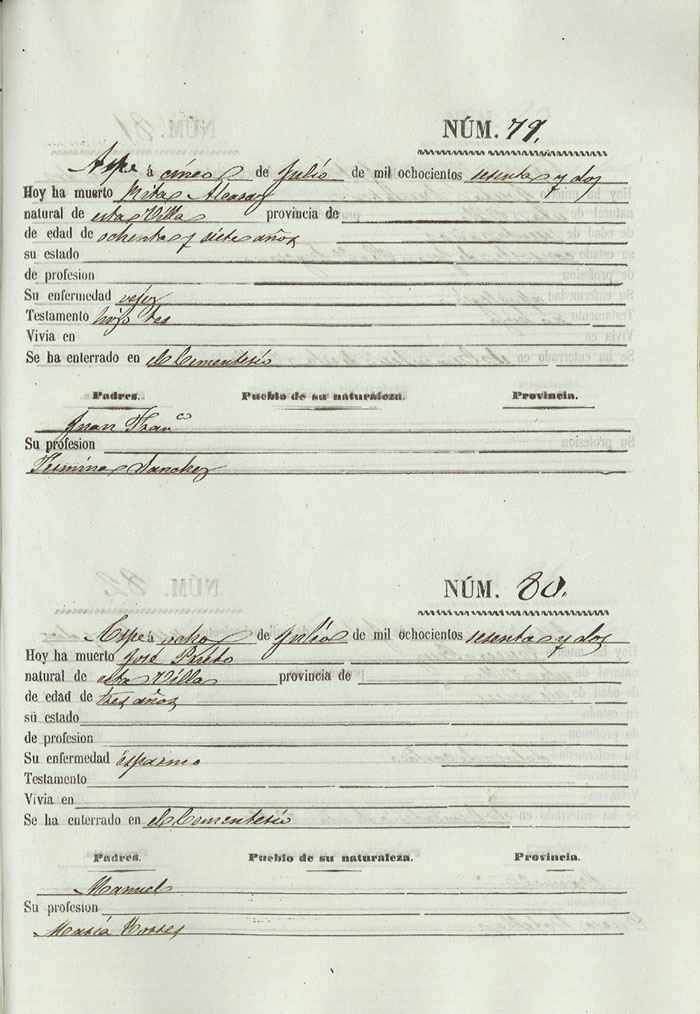 NÚM. 79.
Aspe á cinco de Julio de mil ochocientos sesenta y dos
Hoy ha muerto Rita Alcaraz
natural de esta Villa provincia de
de edad de ochenta y siete años
su estado
de profesion
Su enfermedad vejez
Testamento hizo tes
Vivia en
Se ha enterrado en el Cementerio
Padres. Pueblo de su naturaleza. Provincia.
Juan Fran.co
Su profesion
Fermina Sanchez
NÚM. 80.
Aspe á ocho de Julio de mil ochocientos sesenta y dos
Hoy ha muerto José Prieto
natural de esta Villa provincia de
de edad de tres años
su estado
de profesion
Su enfermedad Espasmo
Testamento
Vivia en
Se ha enterrado en el Cementerio
Padres. Pueblo de su naturaleza. Provincia.
Manuel
Su profesion
María